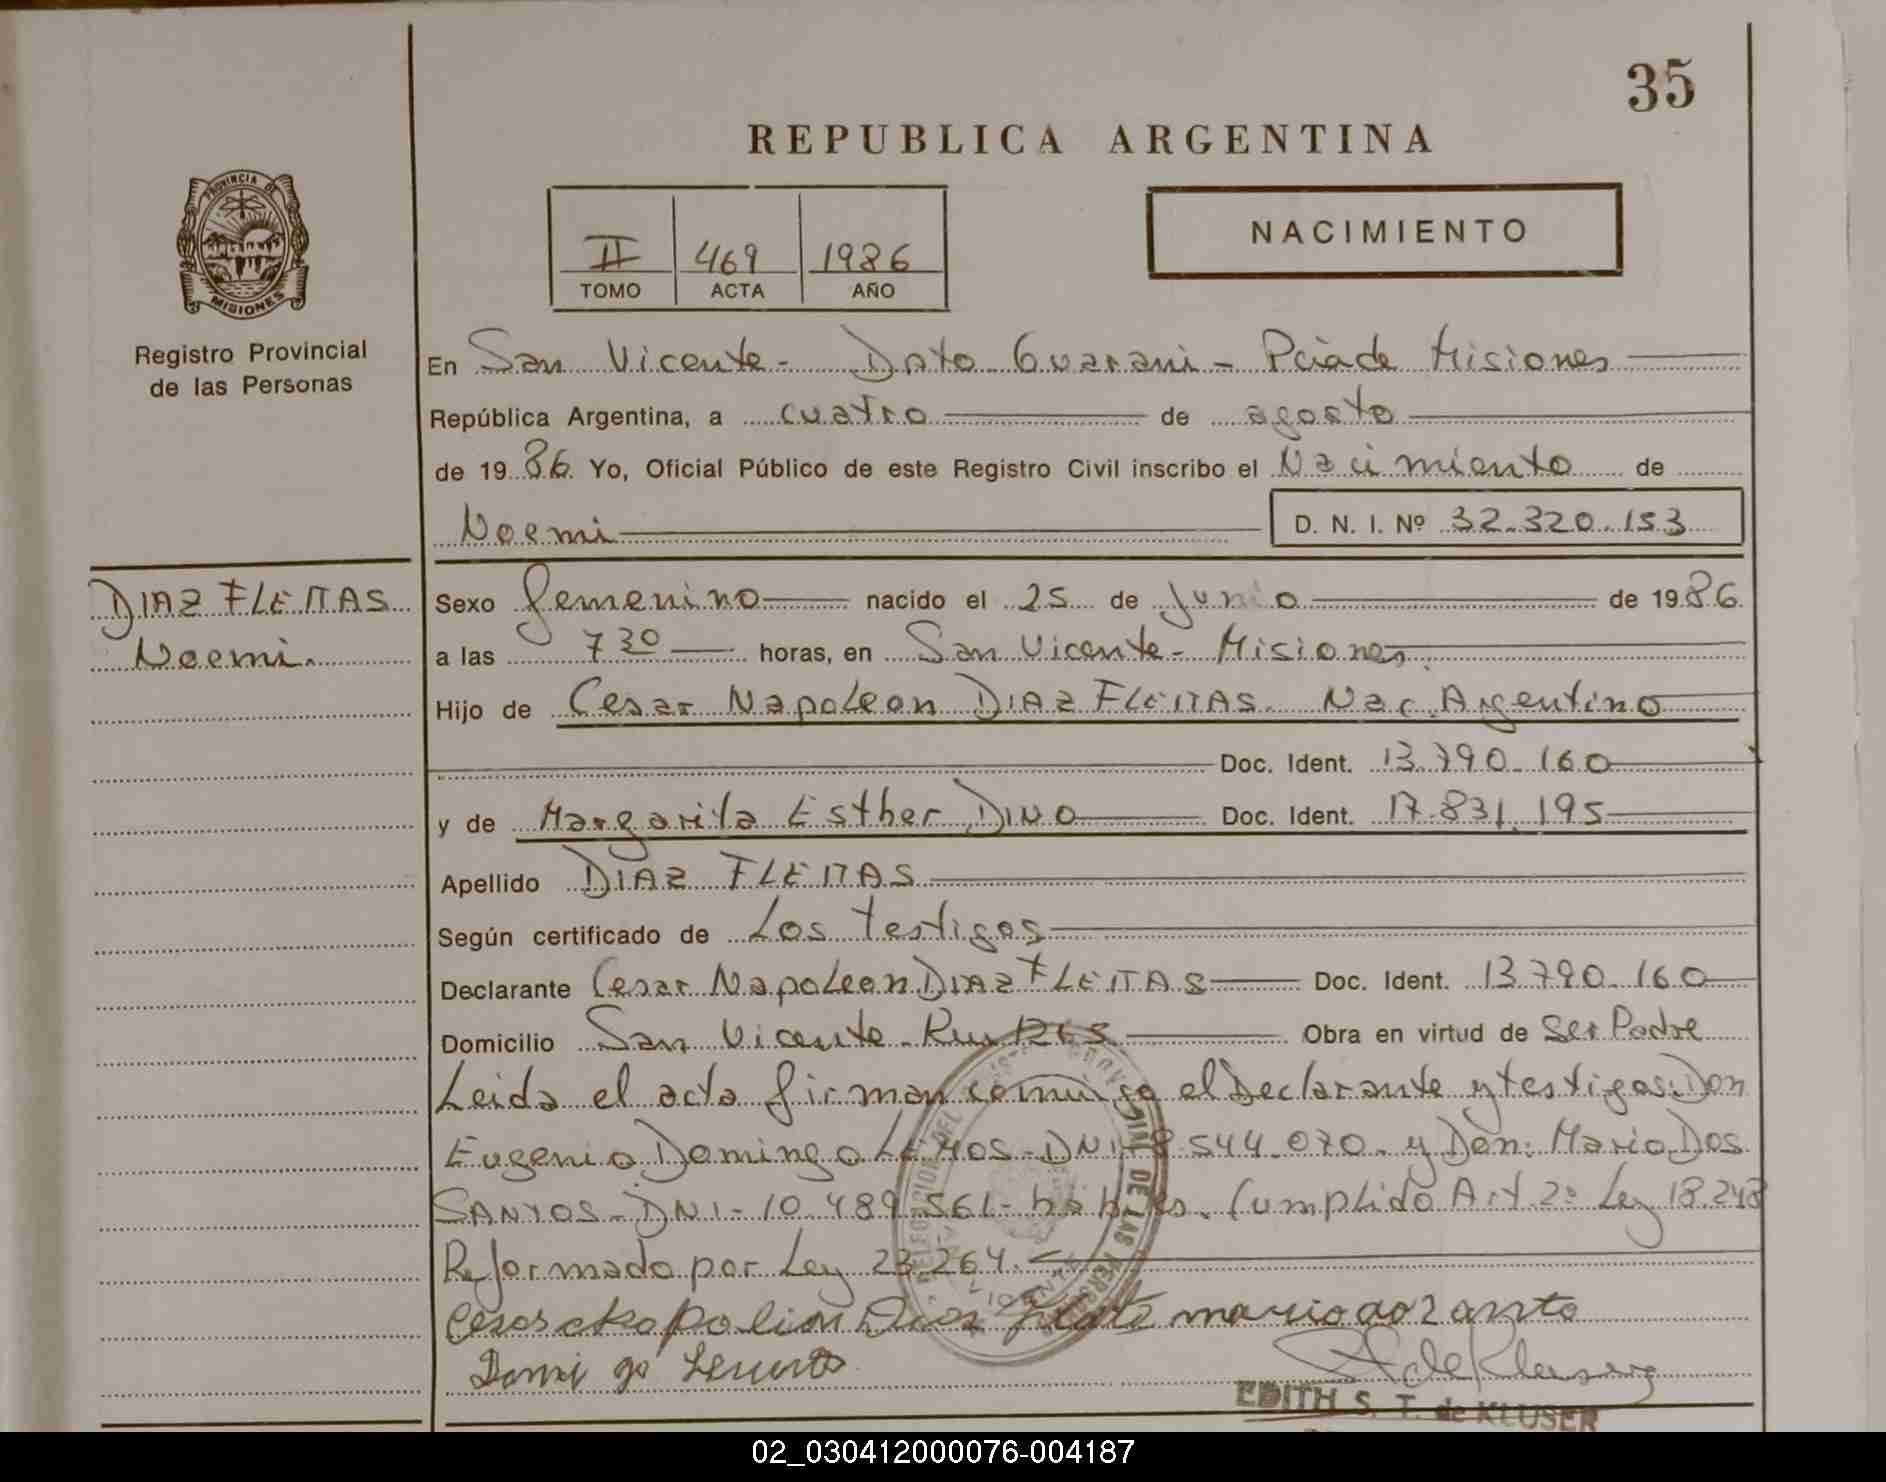 35
REPUBLICA ARGENTINA
PROVINCIA DE
MISIONES
Registro Provincial
de las Personas
II 469 1986
TOMO ACTA AÑO
NACIMIENTO
En San Vicente - Dpto Guarani - Pcia de Misiones
República Argentina, a cuatro de agosto
de 1986. Yo, Oficial Público de este Registro Civil inscribo el Nacimiento de
Noemi D. N. I. Nº 32.320.153
DIAZ FLEITAS
Noemi.
Sexo femenino nacido el 25 de Junio de 1986.
a las 7 30 horas, en San Vicente - Misiones.
Hijo de Cesar Napoleon DIAZ FLEITAS. Nac. Argentino
Doc. Ident. 13.790.160
y de Margarita Esther DINO Doc. Ident. 17.831.195
Apellido DIAZ FLEITAS
Según certificado de Los testigos
Declarante Cesar Napoleon DIAZ FLEITAS Doc. Ident. 13.790.160
Domicilio San Vicente. Obra en virtud de Ser Padre
Leida el acta firman conmigo el Declarante y testigos: Don
Eugenio Domingo LEMOS - DNI - 8.544.070. y Don: Mario DOS
SANTOS - DNI - 10.489.561 - hábiles. Cumplido Art. 2º Ley 18.248
Reformado por Ley 23.264.
DE LAS PERSONAS
mario dos santo
EDITH S. T. de KLUSER
02_030412000076-004187